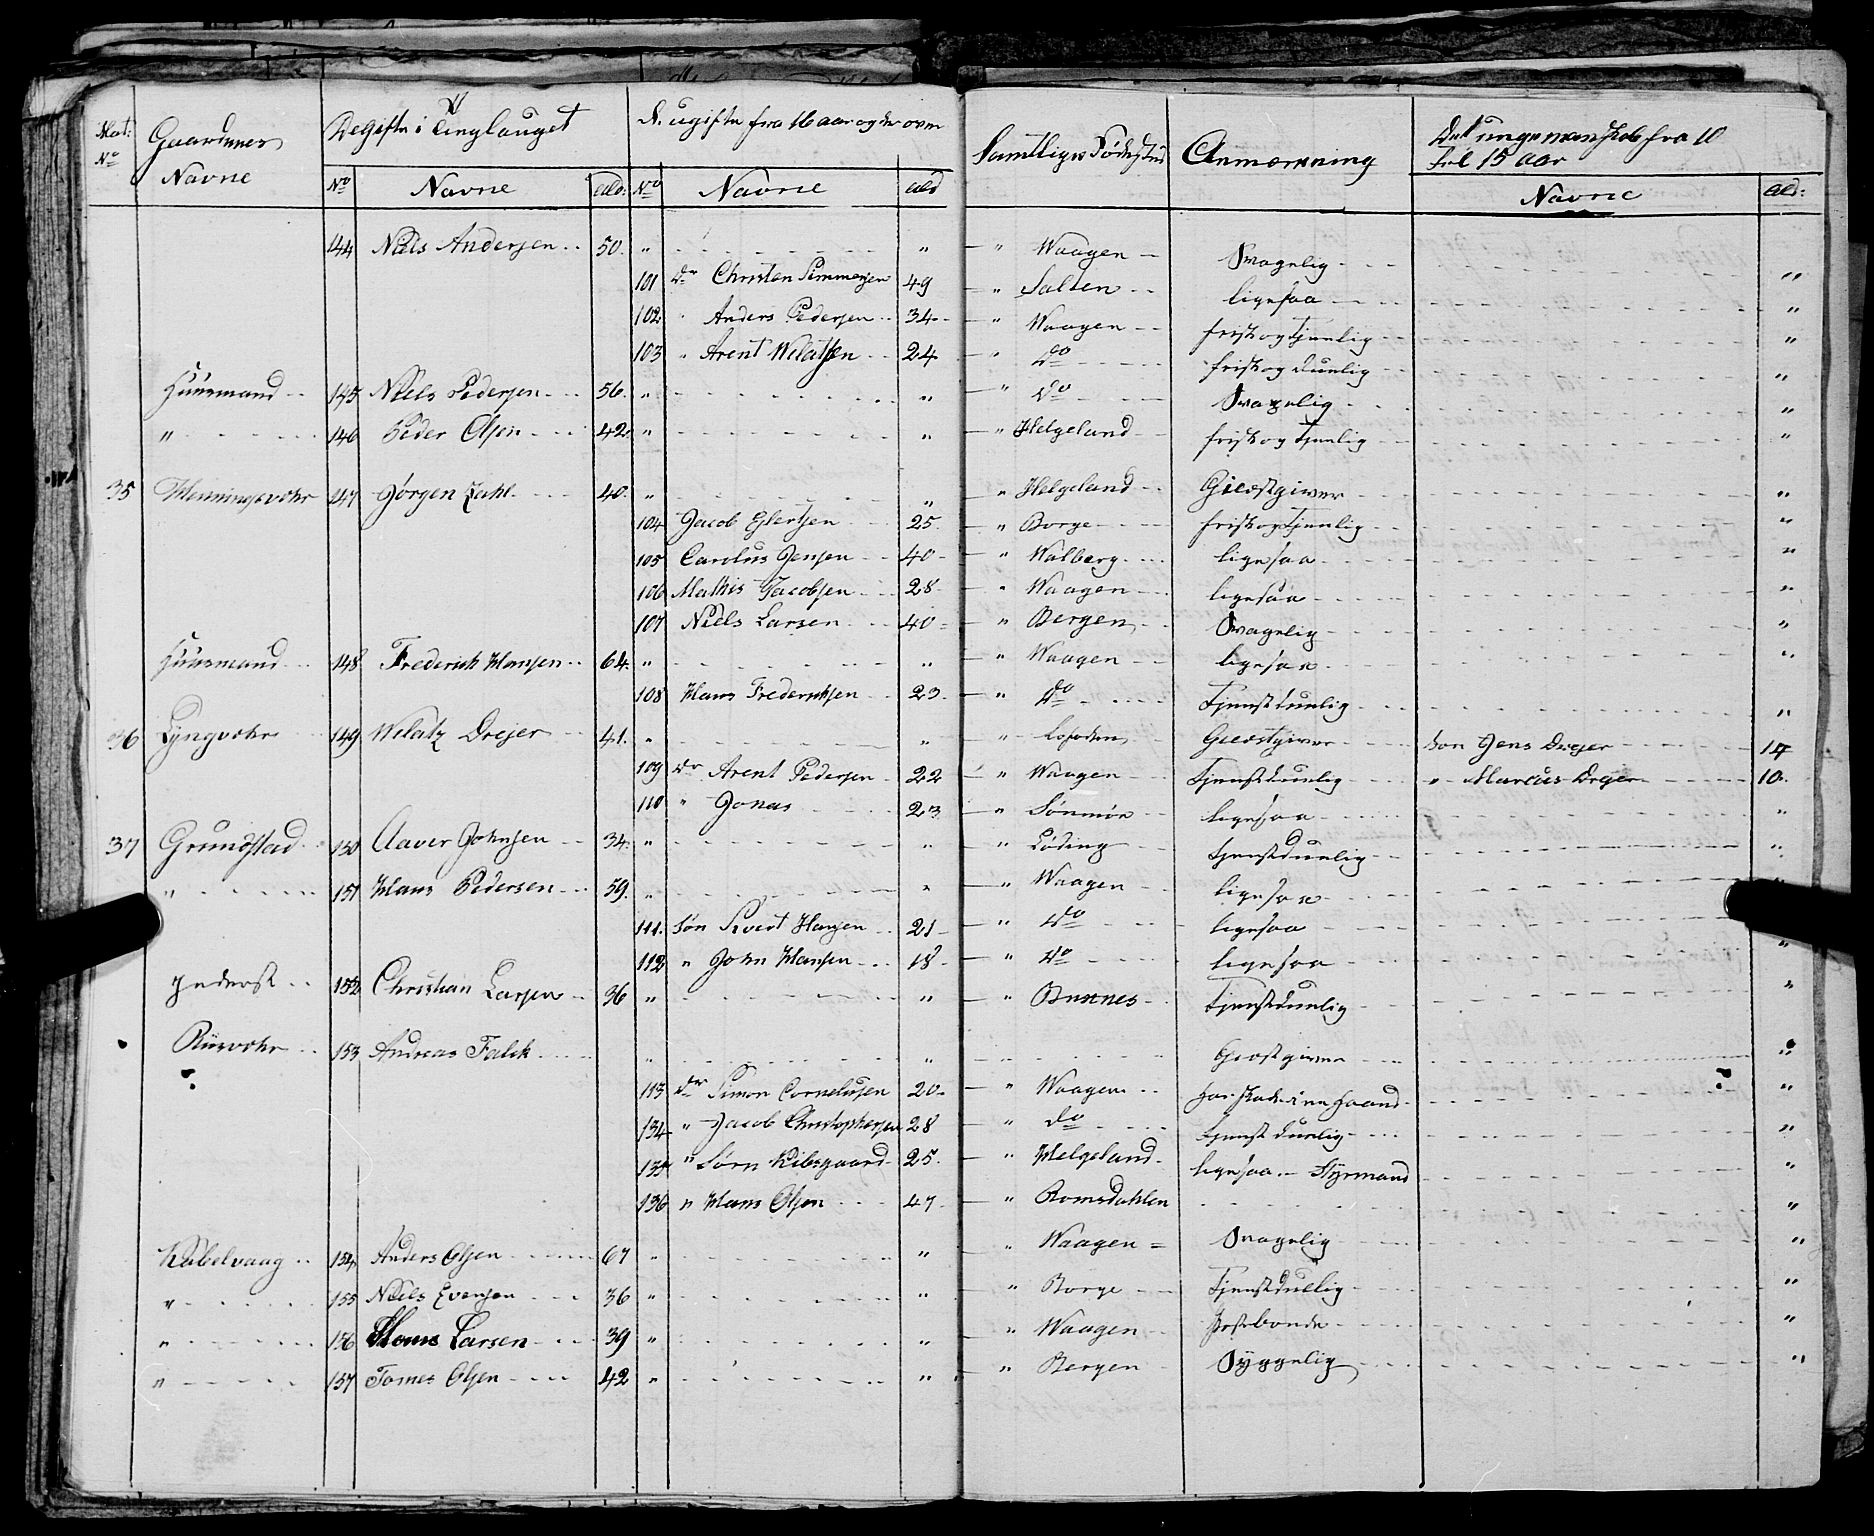 Mat: No Gaardenes Navne De Gifte i Tinglauget D. ugifte fra 16 aar og der over Samtliges Fødested Anmærkning Det unge mandskab fra 10 til 15 aar
No Navne Ald: No Navne Ald Navne Ald:
144 Niels Andersen 50. " " " Waagen Svagelig "
101 Dr Christen Simmonsen 49 " Salten ligesaa "
102 " Anders Pedersen 34 " Waagen frisk og Tjenlig "
103 " Arent Welatsen 24 " Do frisk og Duelig "
Huusmand 145 Niels Pedersen 56. " " " Do Svagelig "
" 146 Peder Olsen 42. " " " Helgeland frisk og Tjenlig "
35 Henningsvohr 147 Jørgen Zahl 40. " " " Helgeland Giestgiver "
104 Jacob Elertsen 25. " Borge frisk og Tjenlig "
105 Carolus Jensen 40 " Walberg ligesaa "
106 Mathis Jacobsen 28 " Waagen ligesaa "
107 Niels Larsen 40 " Bergen Svagelig "
Huusmand 148 Frederich Hansen 64. " " " Waagen ligesaa "
108 Hans Frederichsen 23. " Do Tjenstduelig "
36 Lyngvohr 149 Welatz Drejer 41. " " " Lofoden Giestgiver Søn Jens Drejer 14
109 Dr Arent Pedersen 22 " Waagen Tjenstduelig " Marcus Drejer 10.
110 " Jonas 23 " Søndmør ligesaa "
37 Grundstad 150 Aaver Johnsen 34. " " " Løding Tjenstduelig "
" 151 Hans Pedersen 59. " " " Waagen ligesaa "
111. Søn Sivert Hansen 21 " Do ligesaa
112 " John Hansen 18 " Do ligesaa "
Inderst 152 Christian Larsen 36 " " " Buxnes Tjenstduelig "
Riisvohr 153 Andreas Falch " " Giestgiver "
113 Dr Simon Corneliusen 20 " Waagen har skade i en Haand "
134 " Jacob Christophersen 28 " Do Tjenst duelig "
135 " Sørn Kilsgaard 25. " Helgeland ligesaa - Styrmand "
136 " Hans Olsen 47 " Romsdahlen "
Kabelvaag 154 Anders Olsen 67 " " " Waagen Svagelig "
" 155 Niels Evensen 36 " " " Borge Tjenstduelig "
" 156 Hans Larsen 39 " " " Waagen Postbonde "
" 157 Tomes Olsen 42 " " " Bergen Syggelig "